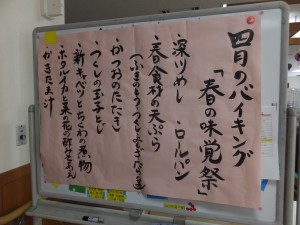 四月のバイキング
「春の味覚祭」
深川めし ロールパン
春食材の天ぷら
かつおのたたき
つくしの玉子とじ
新キャベツとちくわの煮物
ホタルイカと菜の花の酢みそあえ
かきたま汁